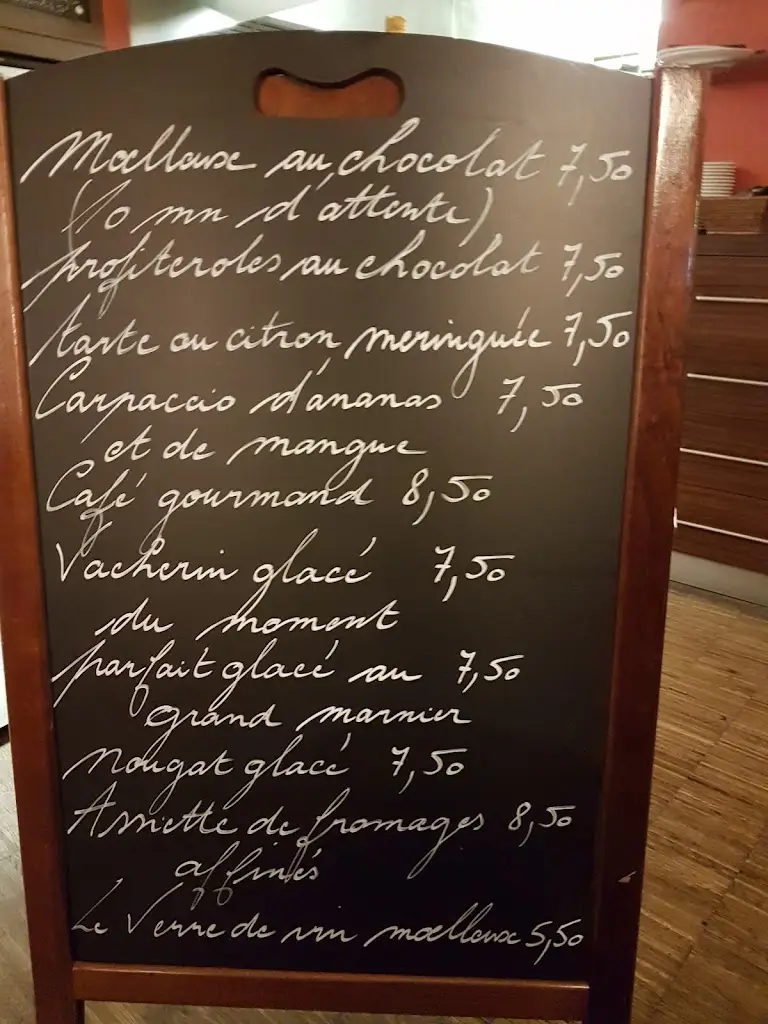 Moelleux au chocolat 7,50
(10 mn d'attente)
profiteroles au chocolat 7,50
tarte au citron meringuée 7,50
Carpaccio d'ananas 7,50
et de mangue
Café gourmand 8,50
Vacherin glacé 7,50
du moment
parfait glacé au 7,50
grand marnier
Nougat glacé 7,50
Assiette de fromages 8,50
affinés
Le Verre de vin moelleux 5,50